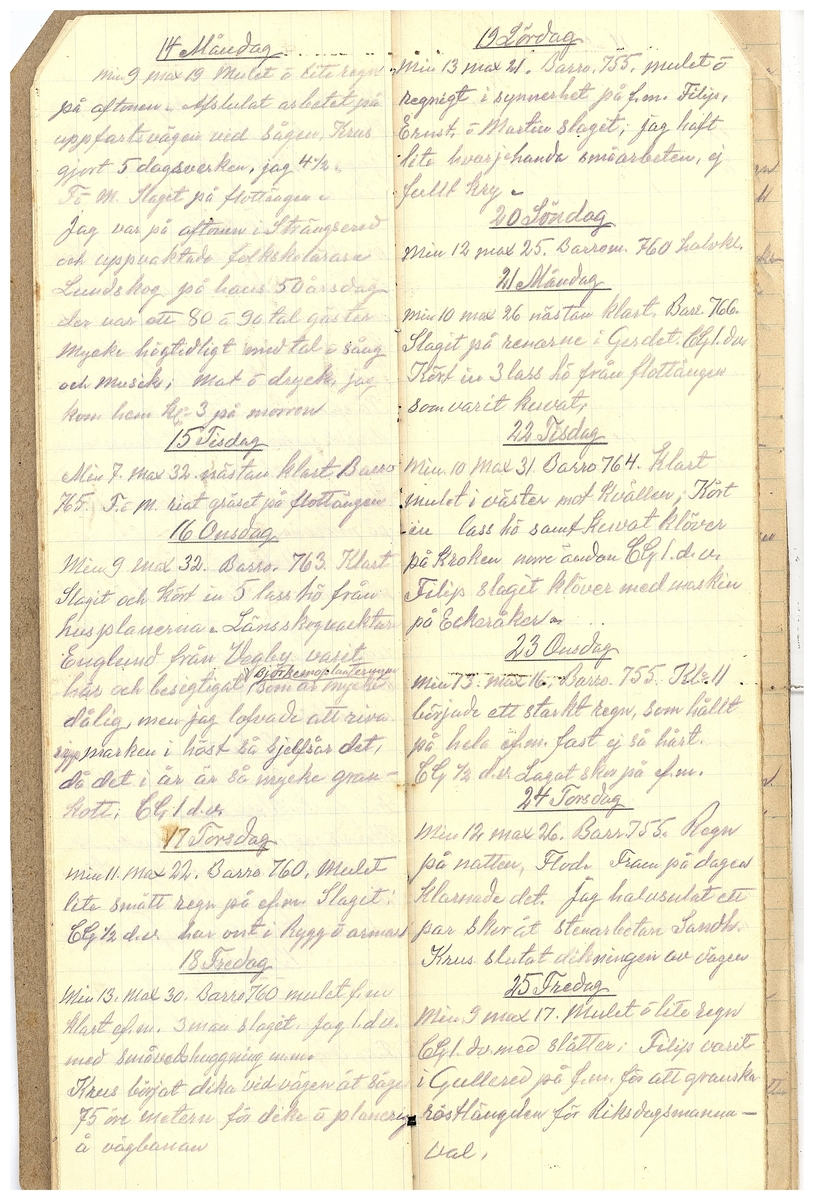 14 Måndag
Min 9 max 19 Mulet o lite regn
på aftonen. Afslutat arbetet på
uppfartsvägen ved sågen, Krus
gjort 5 dagsverken, jag 4½.
F o M. Slaget på flottängen.
Jag var på aftonen i Strängsered
och uppvaktade folkskolärare
Lundskog på hans 50årsdag
der var ett 80 a 90 tal gäster
mycke högtidligt med tal o sång
och musik; mat o dryck, jag
kom hem kl. 3 på morron
15 Tisdag
Min 7. max 32. nästan klart. Barro
765. F. o M. riat gräset på flottängen
16 Onsdag
Min 9 max 32. Barro. 763. Klart
Slagit och kört in 5 lass hö från
husplanerna. Länsskogvaktar
Englund från Vegby varit
här och besigtigat Björkemoplanteringen som är mycke
dålig, men jag lofvade att riva
upp marken i höst så sjelfsår det,
då det i år är så mycke gran-
kott; CG 1 d.v.
17 Torsdag
Min 11. Max 22. Barro 760. Mulet
lite smått regn på efm. Slagit;
CG ½ d.v. har ont i Rygg o armar
18 Fredag
Min 13. Max 30. Barro 760 mulet f.m
klart ef.m. 3 man slagit. Jag 1. d.v.
med småvedshuggning m.m.
Krus börjat dika vid vägen åt såge
75 öre metern för dike o planering
å vägbanan
19 Lördag
Min 13 max 21. Barro. 755. mulet o
regnigt i synnerhet på f.m. Filip,
Ernst, o Martin slagit; jag haft
lite hvarjehanda småarbeten, ej
fullt kry.
20 Söndag
Min 12 max 25. Barrom. 760 halvkl.
21 Måndag
Min 10 max 26 nästan klart. Barr. 766.
Slagit på renarne i Gerdet. CG 1. dv
Kört in 3 lass hö från flottängen
som varit kuvat;
22 Tisdag
Min. 10 Max 31. Barro 764. Klart
mulet i väster mot kvällen; Kört
in lass hö samt kuvat klöver
på Kroken norre ändan CG 1. d.v.
Filip slagit klöver med maskin
på Eckeråker
23 Onsdag
Min 13. max 16. Barro. 755. Kl. 11
började ett starkt regn, som hållt
på hela efm. fast ej så hårt.
CG ½ d.v. Lagat skor på ef.m.
24 Torsdag
Min 12, max 26. Barr. 755. Regn
på natten, Flod. Fram på dagen
klarnade det. Jag halvsulat ett
par skor åt stenarbetar Sandh.
Krus slutat dikningen av vägen
25 Fredag
Min. 9 max 17. Mulet o lite regn
CG 1. dv. med slåtter; Filip varit
i Gullered på f.m. för att granska
röstlängden för Riksdagsmanna-
val.